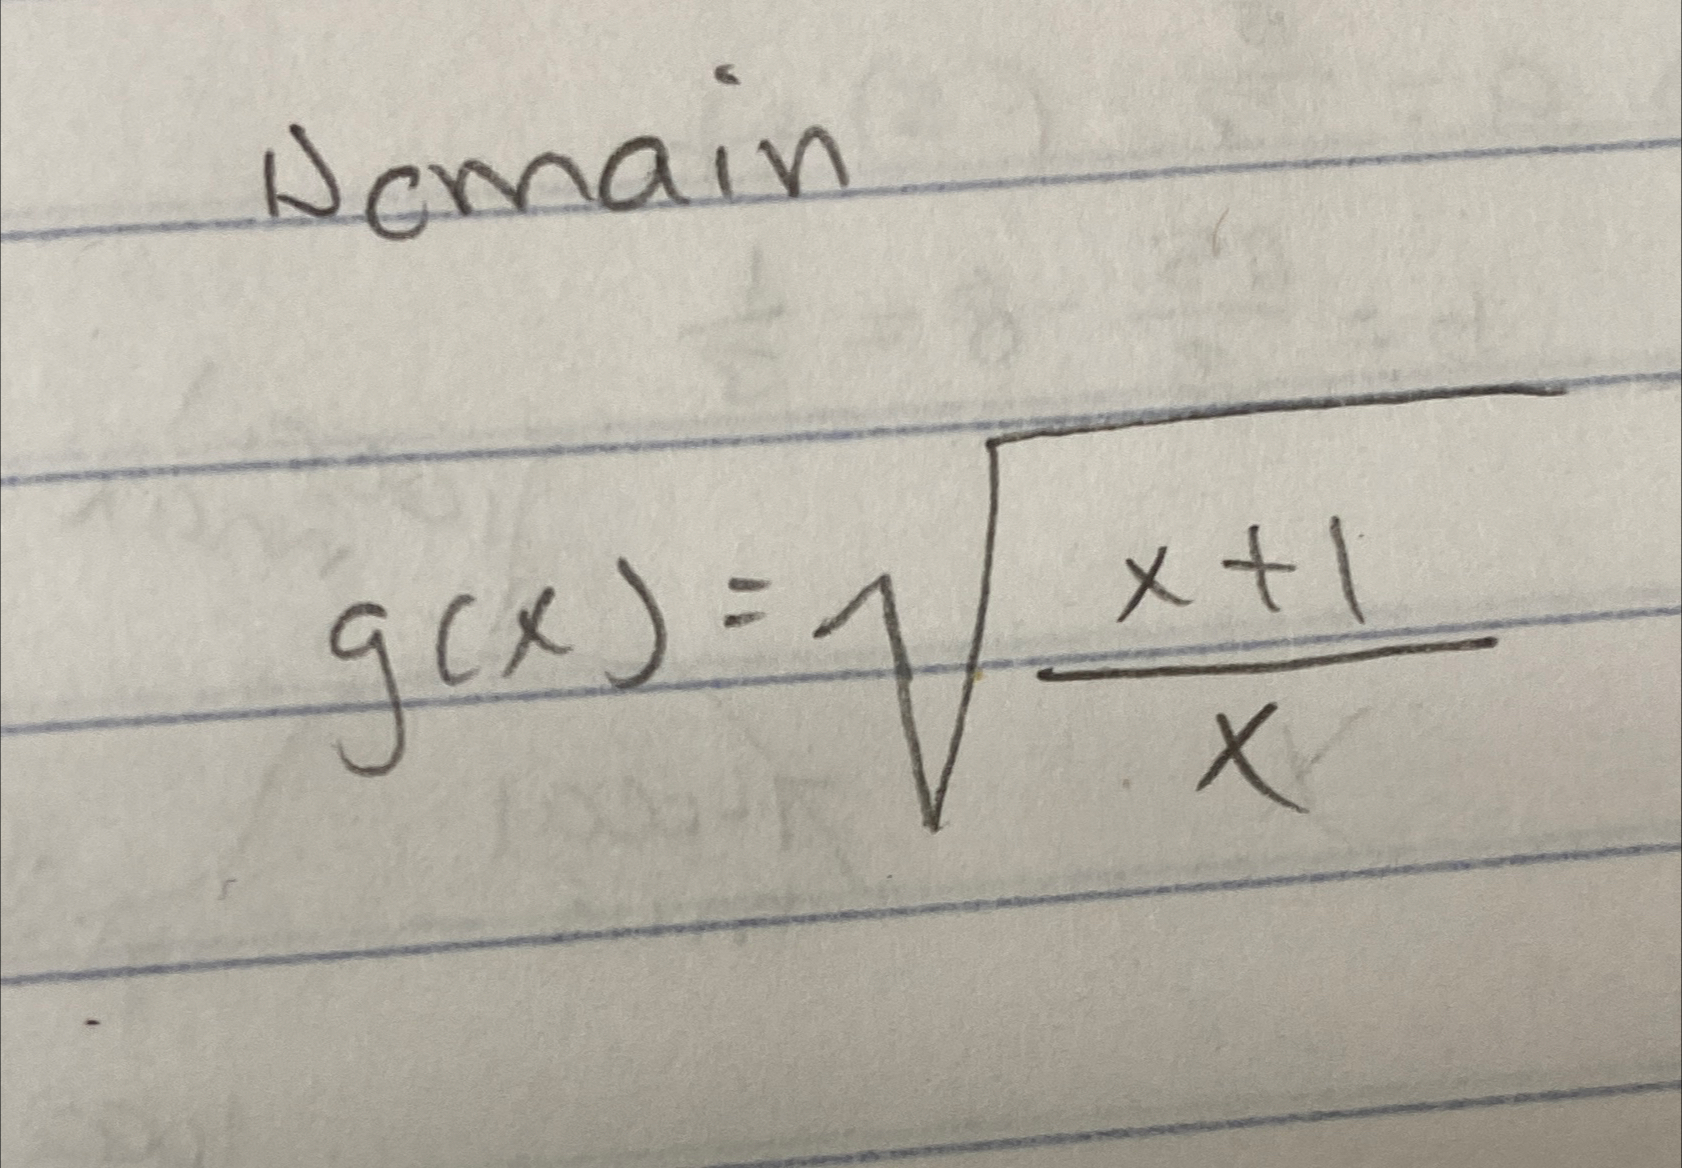 Domain
g(x) = √((x+1)/x)